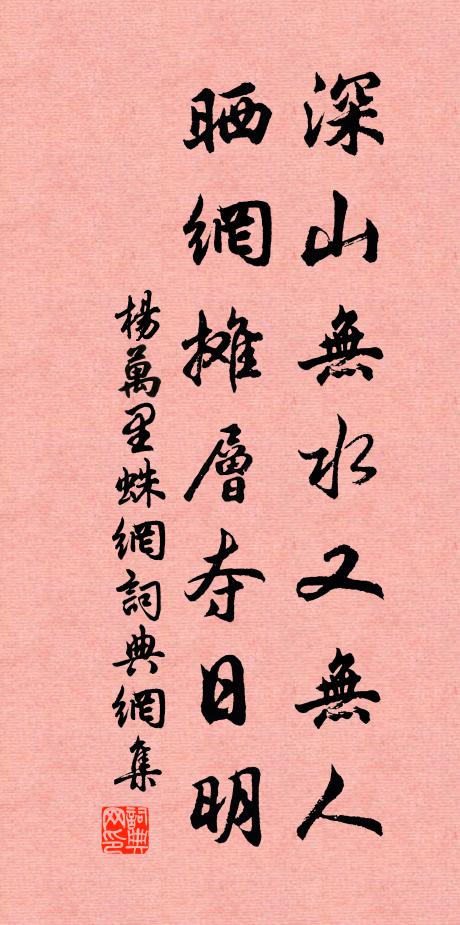 深山無水又無人
晒網摊層夺日明
楊萬里蛛網詞典網集
詞典
网印